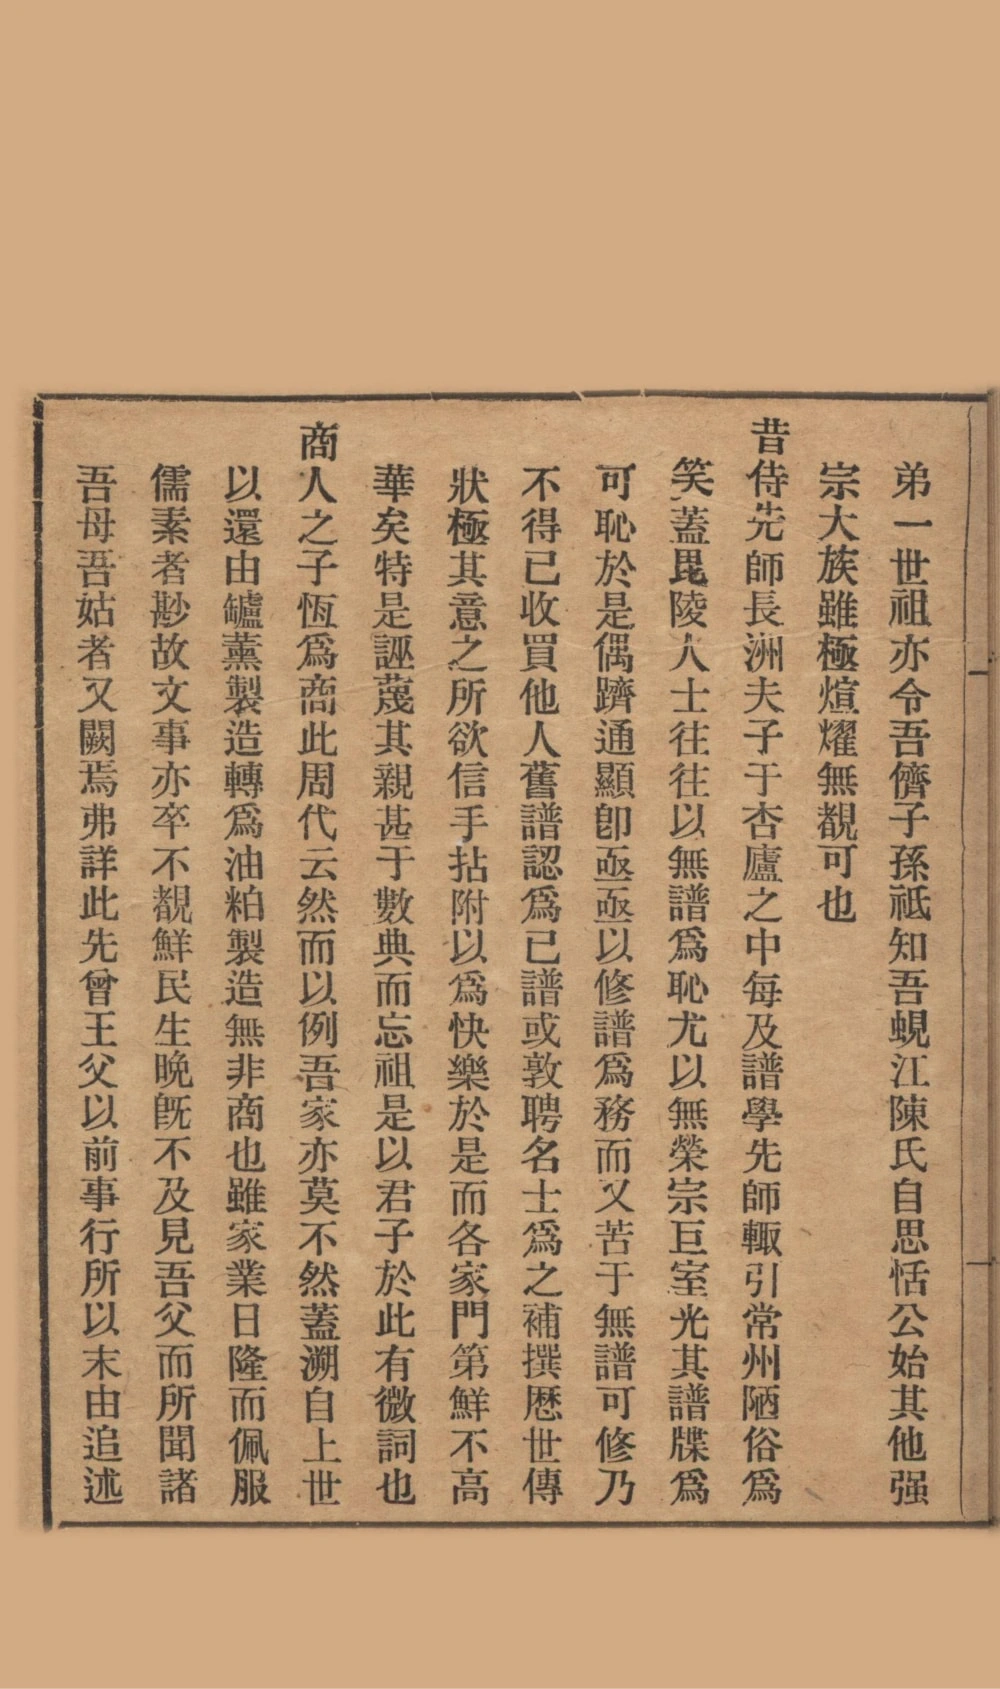 弟一世祖亦令吾儕子孫祗知吾蜆江陳氏自思恬公始其他强
宗大族雖極煊燿無覩可也
昔侍先師長洲夫子于杏廬之中每及譜學先師輙引常州陋俗爲
笑蓋毘陵人士往往以無譜爲恥尤以無榮宗巨室光其譜牒爲
可恥於是偶躋通顯卽亟亟以修譜爲務而又苦于無譜可修乃
不得已收買他人舊譜認爲已譜或敦聘名士爲之補撰歷世傳
狀極其意之所欲信手拈附以爲快樂於是而各家門第鮮不高
華矣特是誣蔑其親甚于數典而忘祖是以君子於此有微詞也
商人之子恆爲商此周代云然而以例吾家亦莫不然蓋溯自上世
以還由罏薰製造轉爲油粕製造無非商也雖家業日隆而佩服
儒素者尠故文事亦卒不覩鮮民生晚旣不及見吾父而所聞諸
吾母吾姑者又闕焉弗詳此先曾王父以前事行所以末由追述